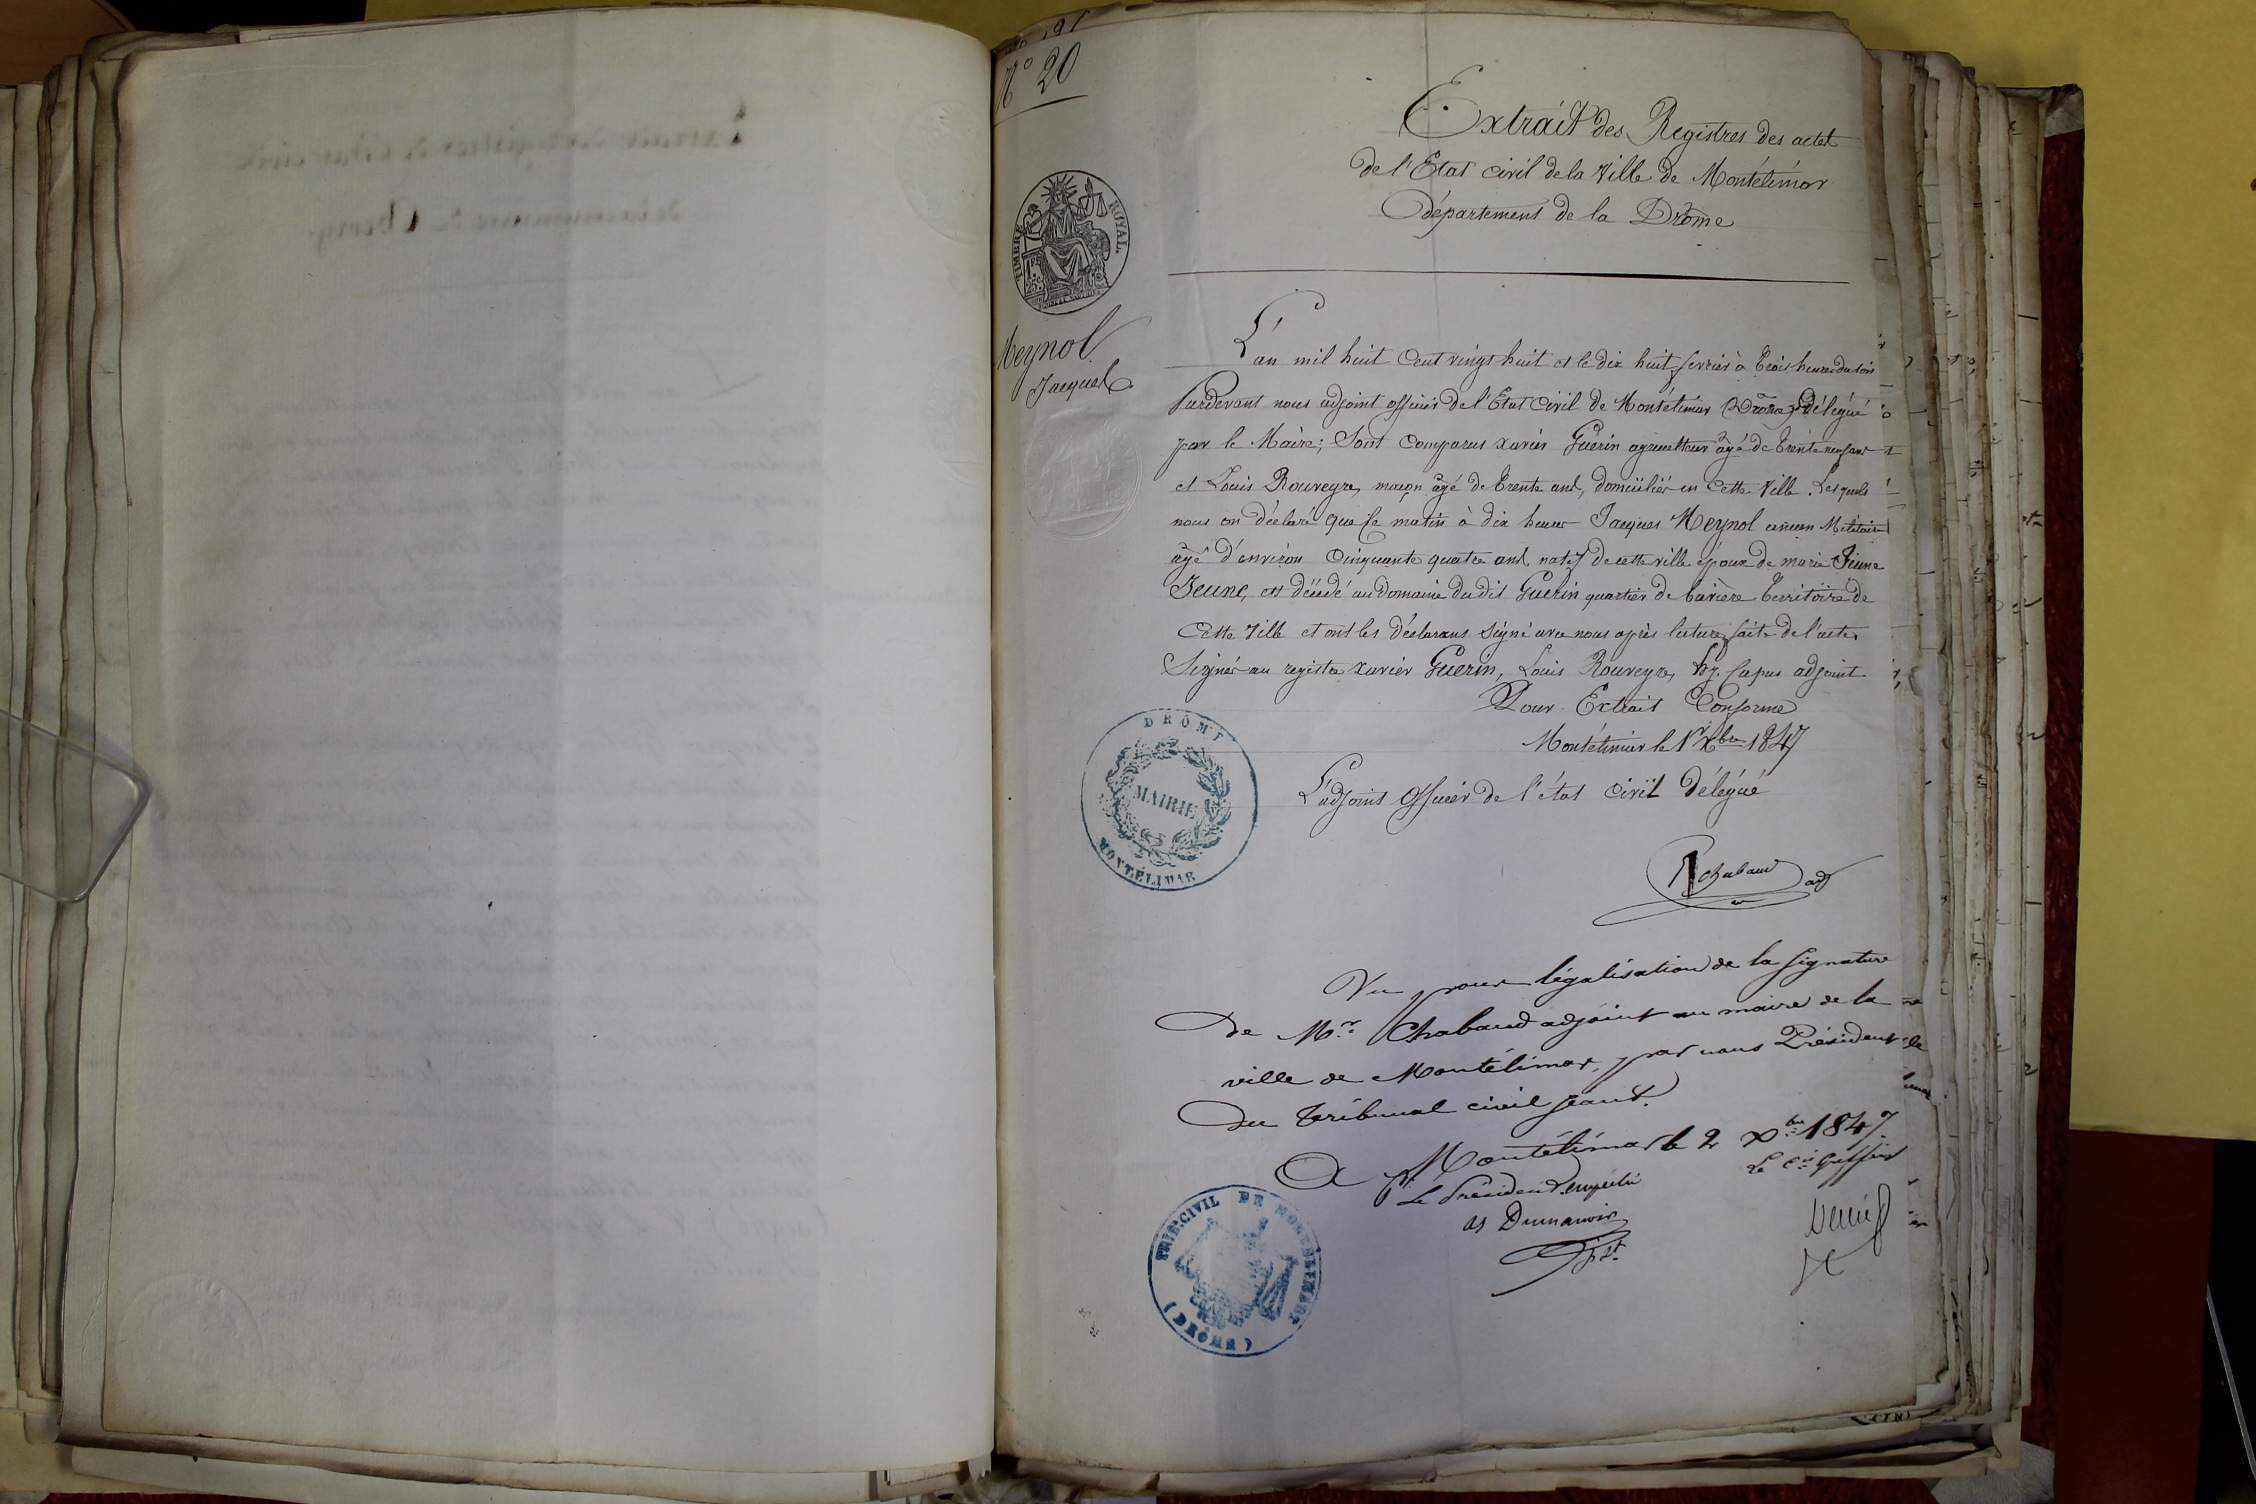 N° 20
Extrait des Registres des actes
de l'Etat civil de la Ville de Montélimar
Département de la Drôme
TIMBRE ROYAL
1 FR
25 C
Meynol
Jacques
L'an mil huit cent vingt huit et le dix huit fevrier à trois heures du soir
Pardevant nous adjoint officier de l'Etat civil de Montélimar (Drôme) délégué
par le Maire; Sont comparus xavier Guerin agriculteur âgé de trente neuf ans
et Louis Rouveyre, maçon âgé de trente ans, domiciliés en cette Ville. Lesquels
nous on déclaré que ce matin à dix heures Jacques Meynol ancien Militaire
âgé d'environ cinquante quatre ans natif de cette ville époux de marie Jeune
Jeune, est décédé au domaine du dit Guerin quartier de territoire de
Cette Ville et ont les déclarans signé avec nous après lecture faite de l'acte.
Signés au registre xavier Guerin, Louis Rouveyre, Capus adjoint
Pour Extrait Conforme
Montélimar le 1er Xbre 1847
L'adjoint officier de l'état civil délégué
DRÔME
MAIRIE
MONTÉLIMAR
Chabaud adj
Vu pour légalisation de la signature
de Mr. Chabaud adjoint au maire de la
ville de Montélimar, par nous Président
du tribunal civil séant.
A Montélimar le 2 Xbre 1847
Le Président empêché
Le Cis Greffier
TRIB. CIVIL DE MONTÉLIMART
(DRÔME)